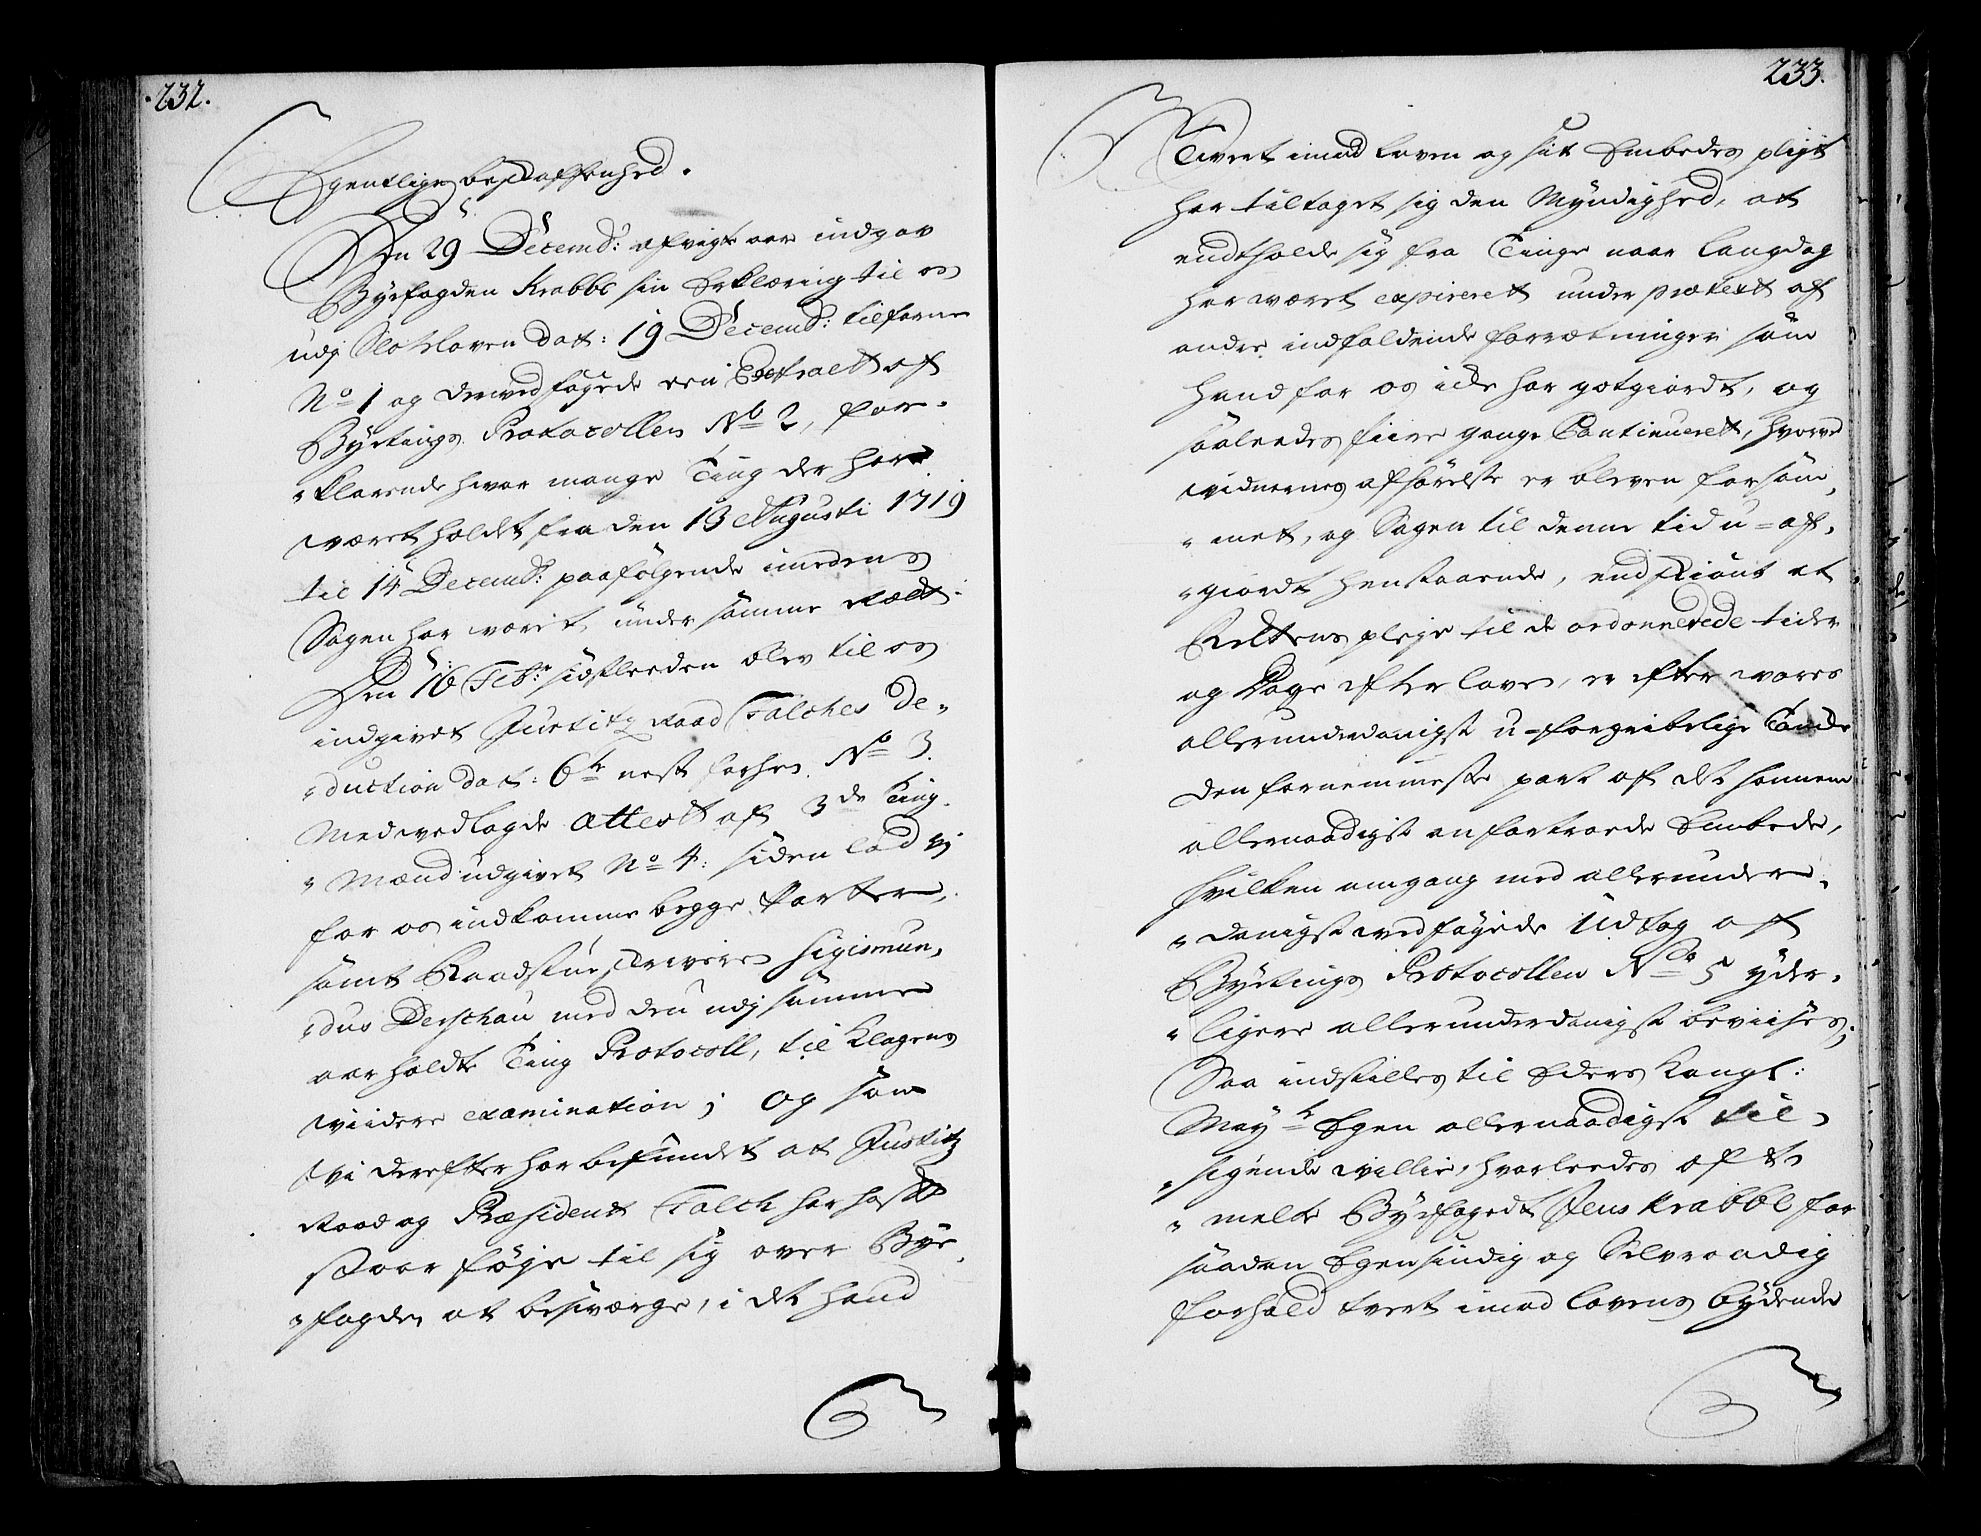 232.
Egentlige beskaffenhed.
Den 29 Decemb: afvigte aar indgav
Byefogden Krabbe sin Erklæring til os
udj Slotsloven dat: 19 Decemb: tilforne
No 1 og derved føyede een Extract af
Byetings Protocollen No 2, for-
klarende hvor mange Ting der har
været holdt fra den 13 Augusti 1719
til 14 Decemb: paafølgende imedens
Sagen har værit under samme Rædt.
Den 16 Febr: sidstleeden blev til os
indgivet Justitz Raad Falches De-
duction dat: 6te nest forhen No 3.
Medvedlagde Attest af 3de Ting-
Mænd udgivet No 4: siden lod vj
for os indkomme begge Parter,
samt Raadstueskriver Sigismun-
dus Derschau med den udj samme
aar holdte Ting Protocoll, til Klagens
viidere examination; og som
vi derefter har befundet at Justitz
Raad og Præsident Falch har hafft
stoor føje til sig over Bye-
fogden at besværge, i det hand
233.
Tvert imod Loven og sit Embedes pligt
har tiltaget sig den Myndighed, at
endtholde sig fra Tinge naar Langdag
har været expireret under prætext af
andre indfaldende forrætninger som
hand for os icke har gotgiordt, og
saaleedes fiere gange Continueret, hvorved
vidnernes afhørelse er bleven forsøm-
met, og Sagen til denne tid u-af-
giordt henstaaende, endskiønt at
Rettens pleje til de ordonnerede tider
og Dage efter loven, er efter vores
allerunderdanigst u-forgribelige Tancke
den fornemmeste part af det hannem
allernaadigst anfortroede Embede,
hvilken omgang med allerunder-
danigst vedføyede Udtog af
Byetings Protocollen No 5 yder-
ligere allerunderdanigst beviises;
Saa indstilles til Eders Kongl:
Mayts Egen allernaadigst til-
sigende villie, hvorleedes oft-
melte Byefogedt Jens Krabbe for
saadan Egensindig og Selvraadig
forhold tvert imod lovens bydende